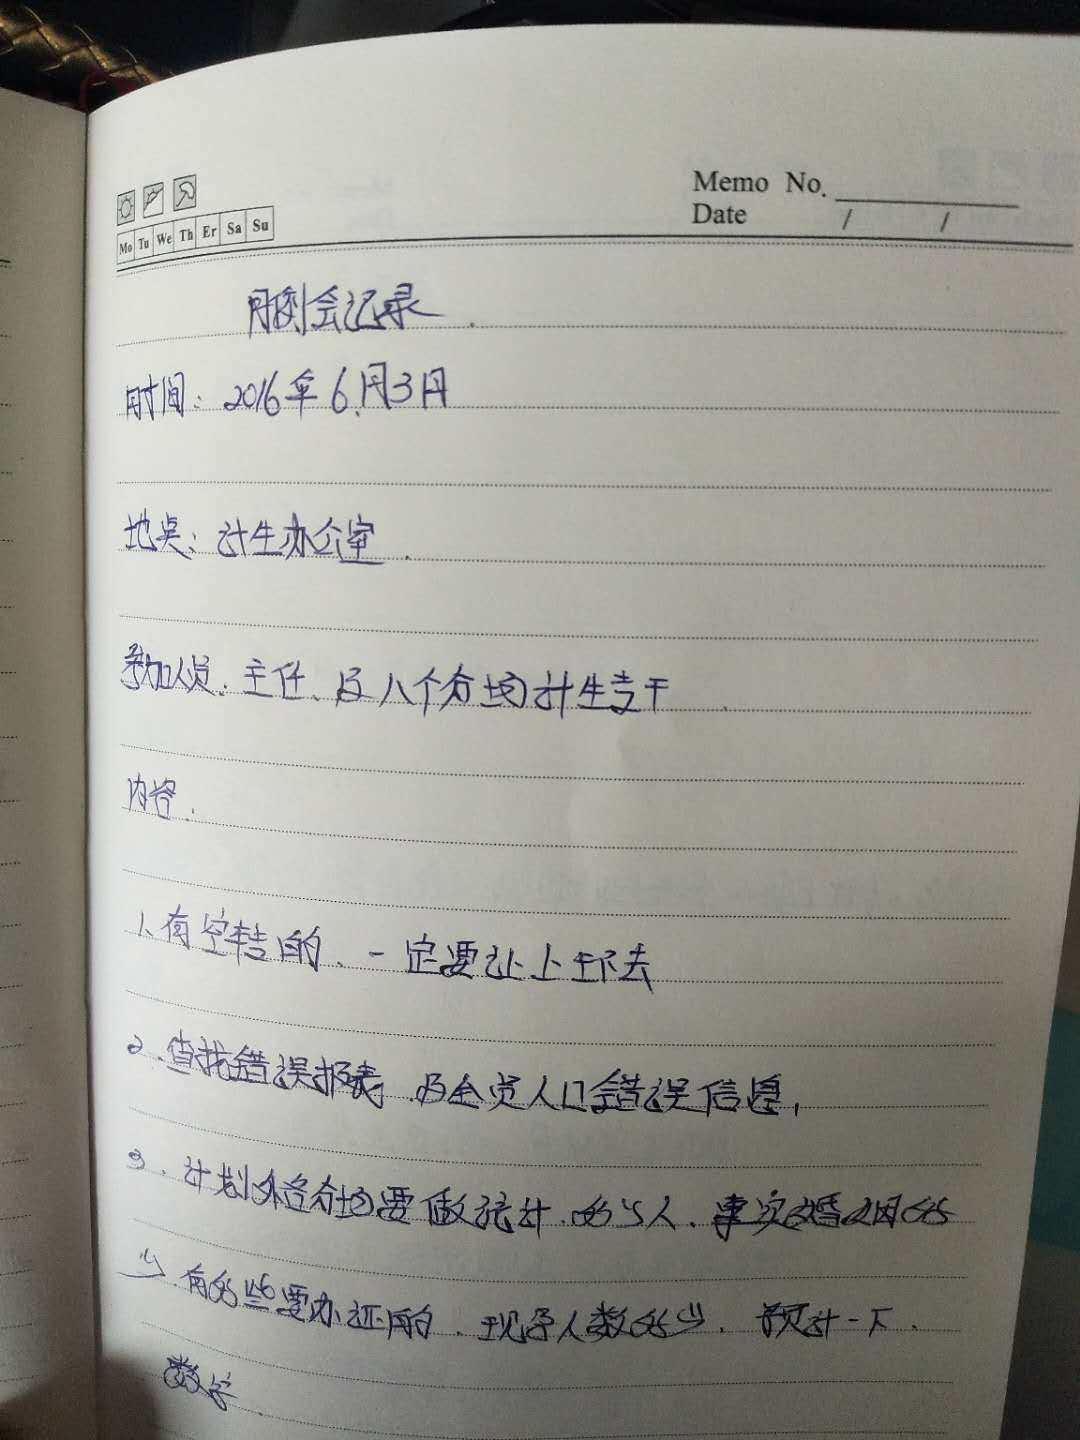 Memo No.
Date / /
Mo Tu We Th Er Sa Su
月例会记录.
时间: 2016年6月3日
地点: 计生办公室.
参加人员、主任、及八个分场计生专干.
内容.
1、有空转的、一定要让上环去
2、查找错误报表、及全员人口错误信息,
3、计划外各分场要做统计、多少人、事实婚姻多少
有多些要办证的、现孕人数多少、预计一下.
数字.